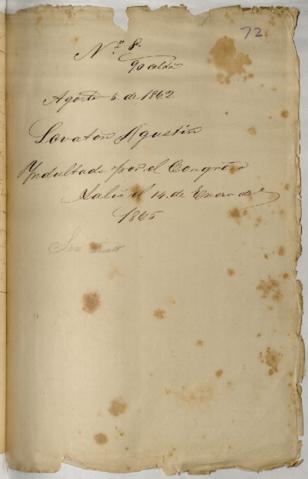 72
N.º 8.
Agosto 6 de 1862
Lovaton Agustin
Yndultado por el Congreso
Salio el 14 de Enero de
1865